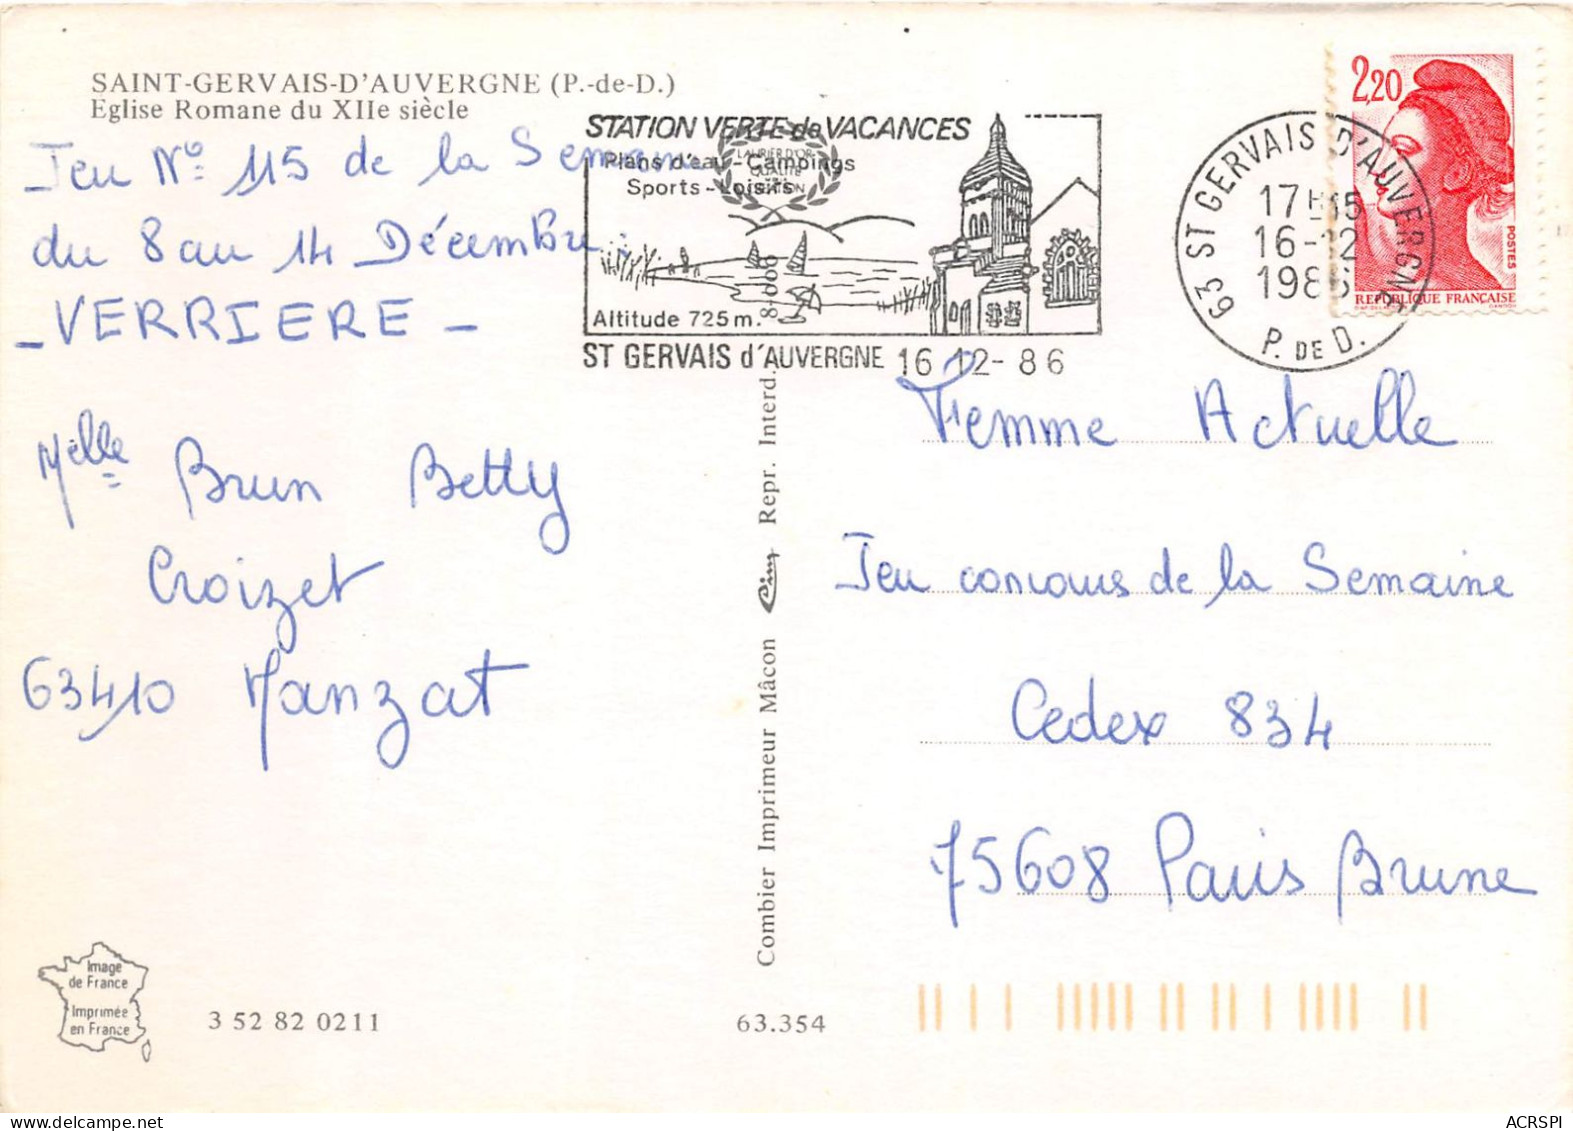 SAINT-GERVAIS-D'AUVERGNE (P.-de-D.)
Eglise Romane du XIIe siècle
Jeu Nº 115 de la Semaine
du 8 au 14 Décembre.
- VERRIERE -
Melle Brun Betty
Croizet
63410 Manzat
STATION VERTE de VACANCES
Plans d'eau - Campings
Sports - Loisirs
LAURIER D'OR
QUALITÉ
Altitude 725 m.
ST GERVAIS d'AUVERGNE 16 12 - 86
63 ST GERVAIS D'AUVERGNE
17H15
16-12
1986
P. DE D.
2,20
POSTES
REPUBLIQUE FRANÇAISE
Femme Actuelle
Jeu concours de la Semaine
Cedex 834
75608 Paris Brune
Combier Imprimeur Mâcon Cim Repr. Interd.
Image
de France
Imprimée
en France
3 52 82 0211
63.354
ACRSPI